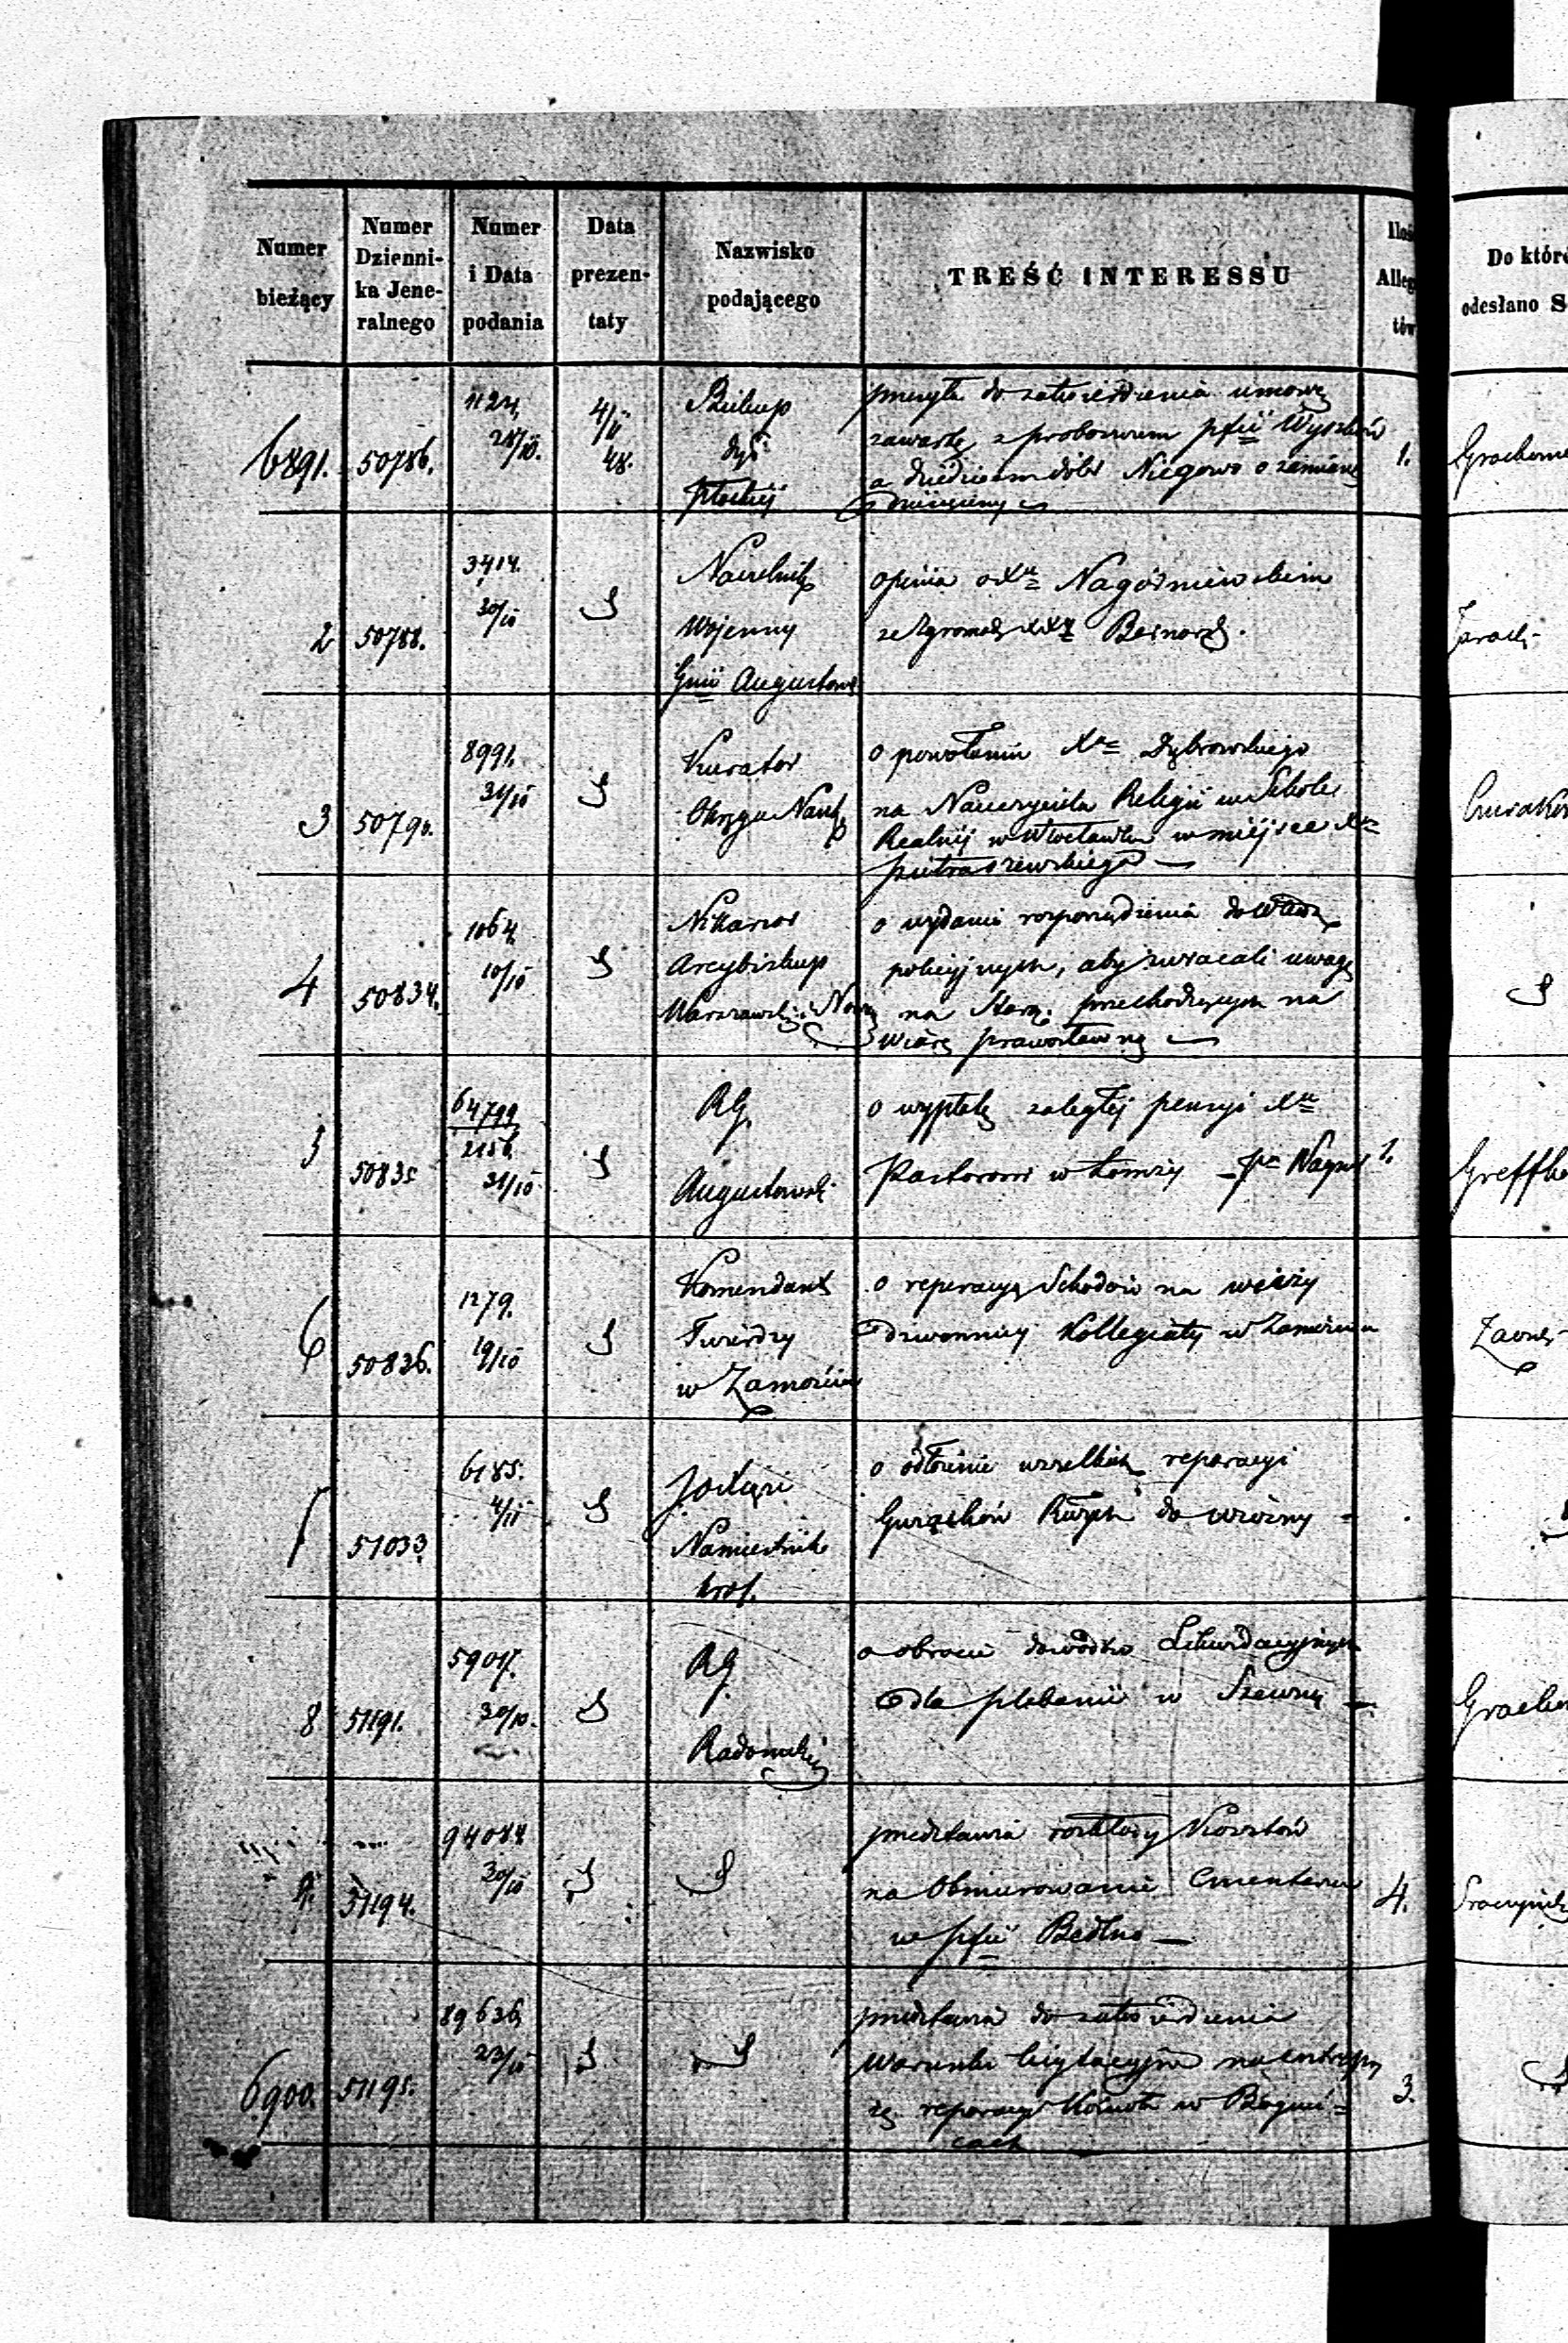 Numer
bieżący
Numer
Dzienni-
ka Jene-
ralnego
Numer
i Data
podania
Data
prezen-
taty
Nazwisko
podającego
TREŚĆ INTERESSU
Do które
odesłano S
6891.
50786.
1124,
28/10.
4/11
48.
Biskup
dyś
Płockiej
przesyła do zatwierdzenia umowę
zawartą z proboszczem pfii Wyszków
a dziedzicem dóbr Niegowo o zamianę
dziesięciny
1.
2
50788.
3414.
30/10
Naczelnik
Wojenny
Gnii Augustows
opinia o Xu Nagórniewskim
ze Zgromadz XX Bernard.
3
50790.
8991.
31/10
Kurator
Okręgu Nauk
o powołaniu Xa Dąbrowskiego
na Nauczyciela Religii w Szkole
Realnej w Włocławku w miejsce Xa
Pietraszewskiego
4
50834.
1064.
10/10
Nikanor
Arcybiskup
Warszawski i Nowo
o wydanie rozporządzenia do Władz
policyjnych, aby zwracali uwagę
na przechodzących na
wiarę prawosławną
5
50835
64799
2156.
31/10
RG.
Augustowski
o wypłatę zaległej pensyi Xu
Pastorowi w Łomży
1.
6
50836.
1279.
19/10
Komendant
Twierdzy
w Zamościu
o reperacyę Schodów na wieży
dzwonnicy Kollegiaty w Zamościu
7
51033
6185.
4/11
Namiestnik
Król.
o odłożenie wszelkich reperacyi
do wiosny
8
51191.
5907.
30/10.
RG
Radomski
o obrocie dowodów Likwidacyjnych
dla plebanii w Szewny
9.
51194.
94084
30/10
przedstawia rozkłady Kosztów
na Obmurowanie Cmentarza
w pfii Bedlno
4.
6900.
51195.
89636
23/10
przedstawia do zatwierdzenia
warunki licytacyjne na entrepry
zę reperacyi Kościoła w
cach
3.